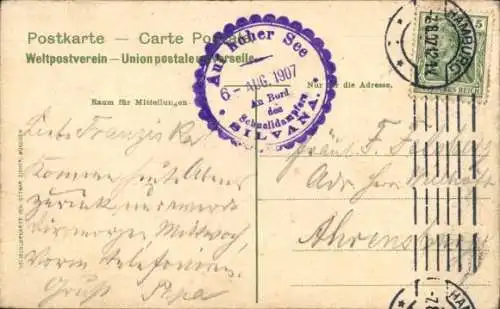 Postkarte — Carte Postale
Weltpostverein — Union postale universelle
Raum für Mitteilungen.
Nur für die Adresse.
Auf hoher See
6- AUG. 1907
An Bord
des
Schnelldampfers
SILVANA.
HAMBURG
5
DEUTSCHES REICH
Liebe Franziska!
Komme heute Abend
zurück und werde
dir morgen Mittwoch,
Vorm telefonieren.
Gruß Papa
Fräul. F.
Adr. Herr
Ahrensburg